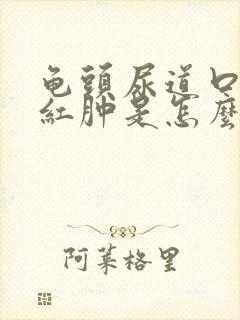 龟頭尿道口
紅肿是怎麼
阿莱格里